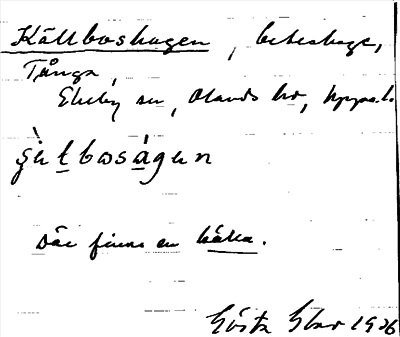 Källboshagen, beteshage,
Tånga,
Ekeby sn, Olands hd, Uppsala l.
Där finns en källa.
Gösta 1926